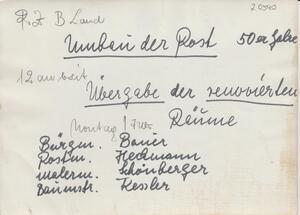 R.Z B Land
Umbau der Post 50er Jahre
12 an breit
Übergabe der renovierten
Räume
Montag
Bürgm. Bauer
Postm. Heckmann
Malerm. Schönberger
Baumstr. Kessler